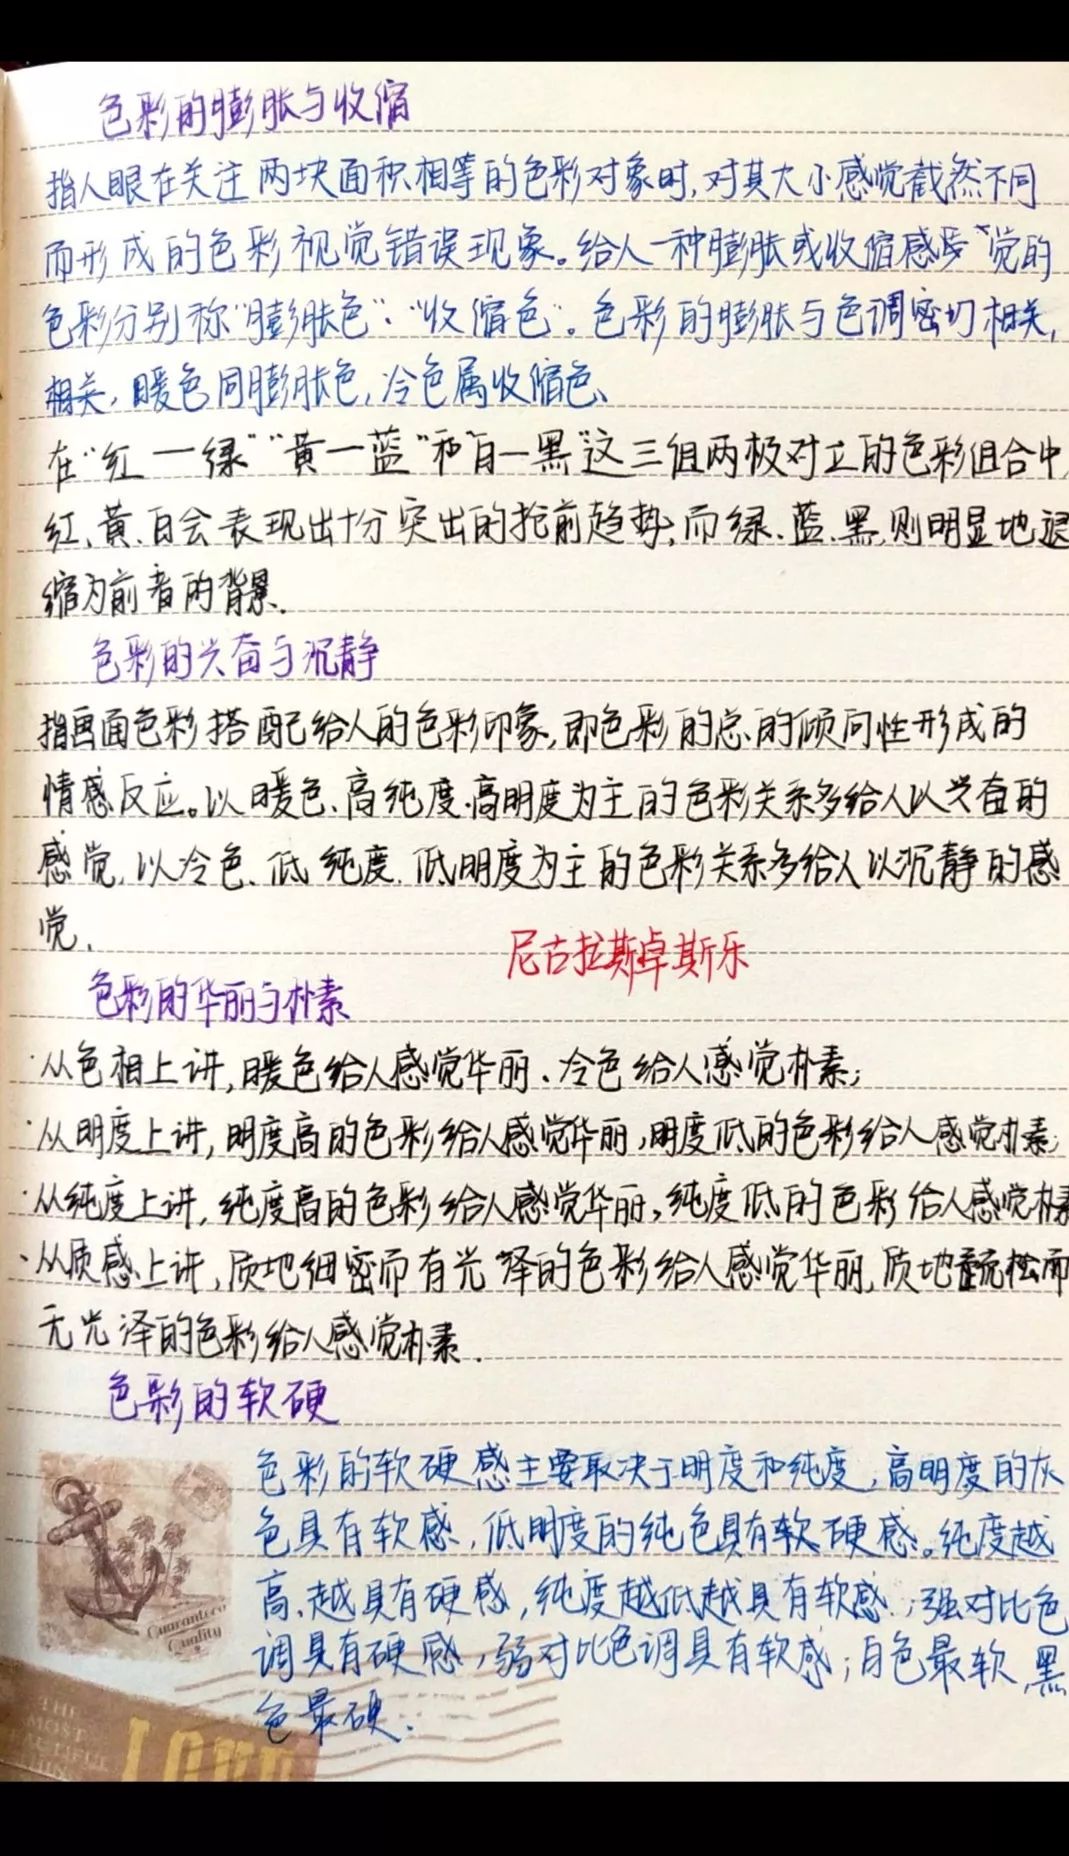 色彩的膨胀与收缩
指人眼在关注两块面积相等的色彩对象时,对其大小感觉截然不同
而形成的色彩视觉错误现象。给人一种膨胀或收缩感受觉的
色彩分别称"膨胀色"、"收缩色"。色彩的膨胀与色调密切相关,
相关,暖色同膨胀色,冷色属收缩色、
在"红一绿""黄一蓝"和"白一黑"这三组两极对立的色彩组合中,
红、黄、白会表现出十分突出的抢前趋势,而绿、蓝、黑,则明显地退
缩为前者的背景.
色彩的兴奋与沉静
指画面色彩搭配给人的色彩印象,即色彩的总的倾向性形成的
情感反应。以暖色、高纯度、高明度为主的色彩关系多给人以兴奋的
感觉,以冷色、低纯度、低明度为主的色彩关系多给人以沉静的感
觉.
尼古拉斯卓斯乐
色彩的华丽与朴素
·从色相上讲,暖色给人感觉华丽、冷色给人感觉朴素;
·从明度上讲,明度高的色彩给人感觉华丽,明度低的色彩给人感觉朴素;
·从纯度上讲,纯度高的色彩给人感觉华丽,纯度低的色彩给人感觉朴素
·从质感上讲,质地细密而有光泽的色彩给人感觉华丽,质地疏松而
无光泽的色彩给人感觉朴素.
色彩的软硬
色彩的软硬感主要取决于明度和纯度,高明度的灰
色具有软感,低明度的纯色具有软硬感。纯度越
高、越具有硬感,纯度越低越具有软感.;强对比色
调具有硬感,弱对比色调具有软感;白色最软,黑
色最硬.
Guaranteed
Quality
THE
MOST